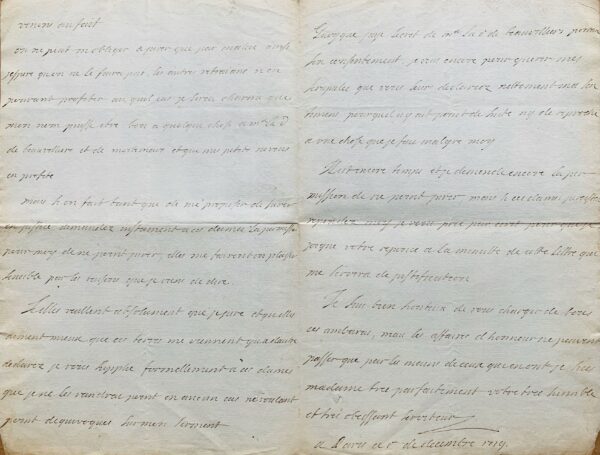 venons au fait
on ne peut m obliger a jurer que par malice ainsi
j espere qu on ne le fera pas les autres retrayans n en
pouvant profiter auquel cas je serai charmé que
mon nom puisse etre bon a quelque chose a me la d.
de beauvilliers et de mortemar et que mes petits neveux
en profite
mais si on fait tant que de me proposer de jurer
en justice demandez instament a ces dames la permission
pour moy de ne point jurer, elles me feront un plaisir
sensible par les raisons que je viens de dire.
Si elles veullent absolument que je jure et qu elles
aiment mieux que ces terres me viennent qu a d autres
declarez je vous supplie formellement a ces dames
que je ne les rendrai point en aucun cas ne voulant
point d equivoques sur mon serment
Quoyque j aye de me la d. de beauvilliers
son consentement, je vous encore pour querir mes
scrupules que vous leur declariez nettement mes sen
timens pour qu il n y ait point de suite ny de reproche
a une chose que je fais malgré moy
Il est encore temps et je demande encore la per
mission de ne point jurer mais si ces dames
moy je vous prie par ecrit pour que je
joigne votre reponce a la minutte de cette lettre qui
me servira de justification
Je suis bien honteux de vous charger de tous
ces ambaras, mais les affaires d honneur ne peuvent
passer que par les mains de ceux qui en ont je suis
madame tres parfaitement votre tres humble
et tres obeissant serviteur
a Paris ce de decembre 1719.